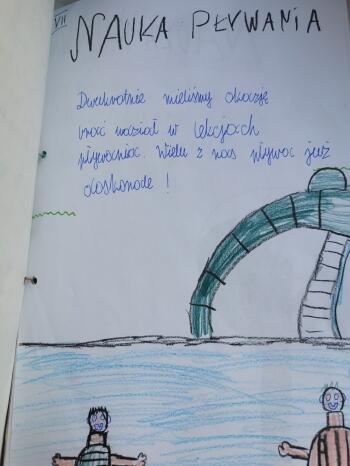 VII
NAUKA PŁYWANIA
Dwukrotnie mieliśmy okazję
brać udział w lekcjach
pływania. Wielu z nas pływać już
doskonale!